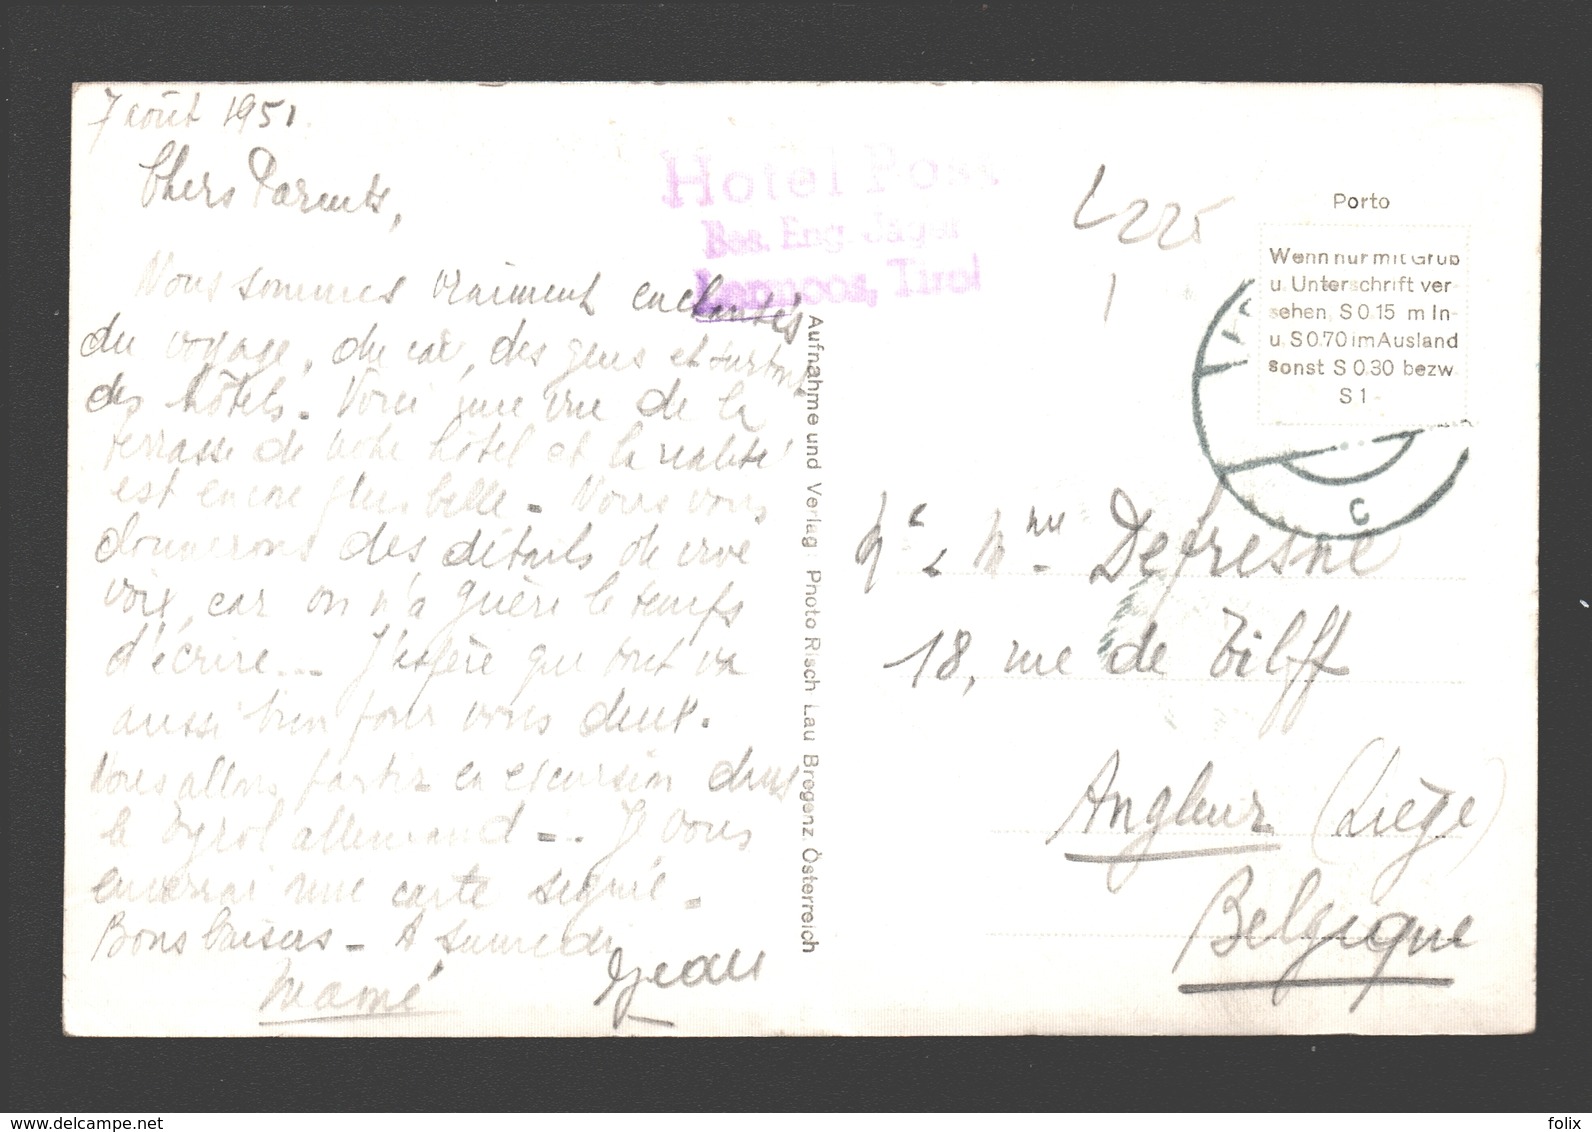 7 août 1951.
Chers Parents,
Nous sommes vraiment enchantés
du voyage, du car, des gens et surtout
des hôtels. Voici une vue de la
terrasse de votre hôtel et la réalité
est encore plus belle - Nous vous
donnerons des détails de vive
voix, car on n'a guère le temps
d'écrire... J'espère que tout va
aussi bien pour vous deux.
Nous allons partir en excursion dans
le Tyrol allemand - . Je vous
enverrai une carte signée -
Bons baisers - A samedi
Mamé
Jean
Hotel Post
Bes. Eng. Jäger
Lermoos, Tirol
Aufnahme und Verlag: Photo Risch Lau Bregenz, Österreich
L 225
1
Porto
Wenn nur mit Gruß
u. Unterschrift ver-
sehen, S 0.15 im In-
u. S 0.70 im Ausland
sonst S 0.30 bezw.
S 1.-
c
Mr & Mme Defresne
18, rue de Tilff
Angleur (Liège)
Belgique
www.delcampe.net
folix